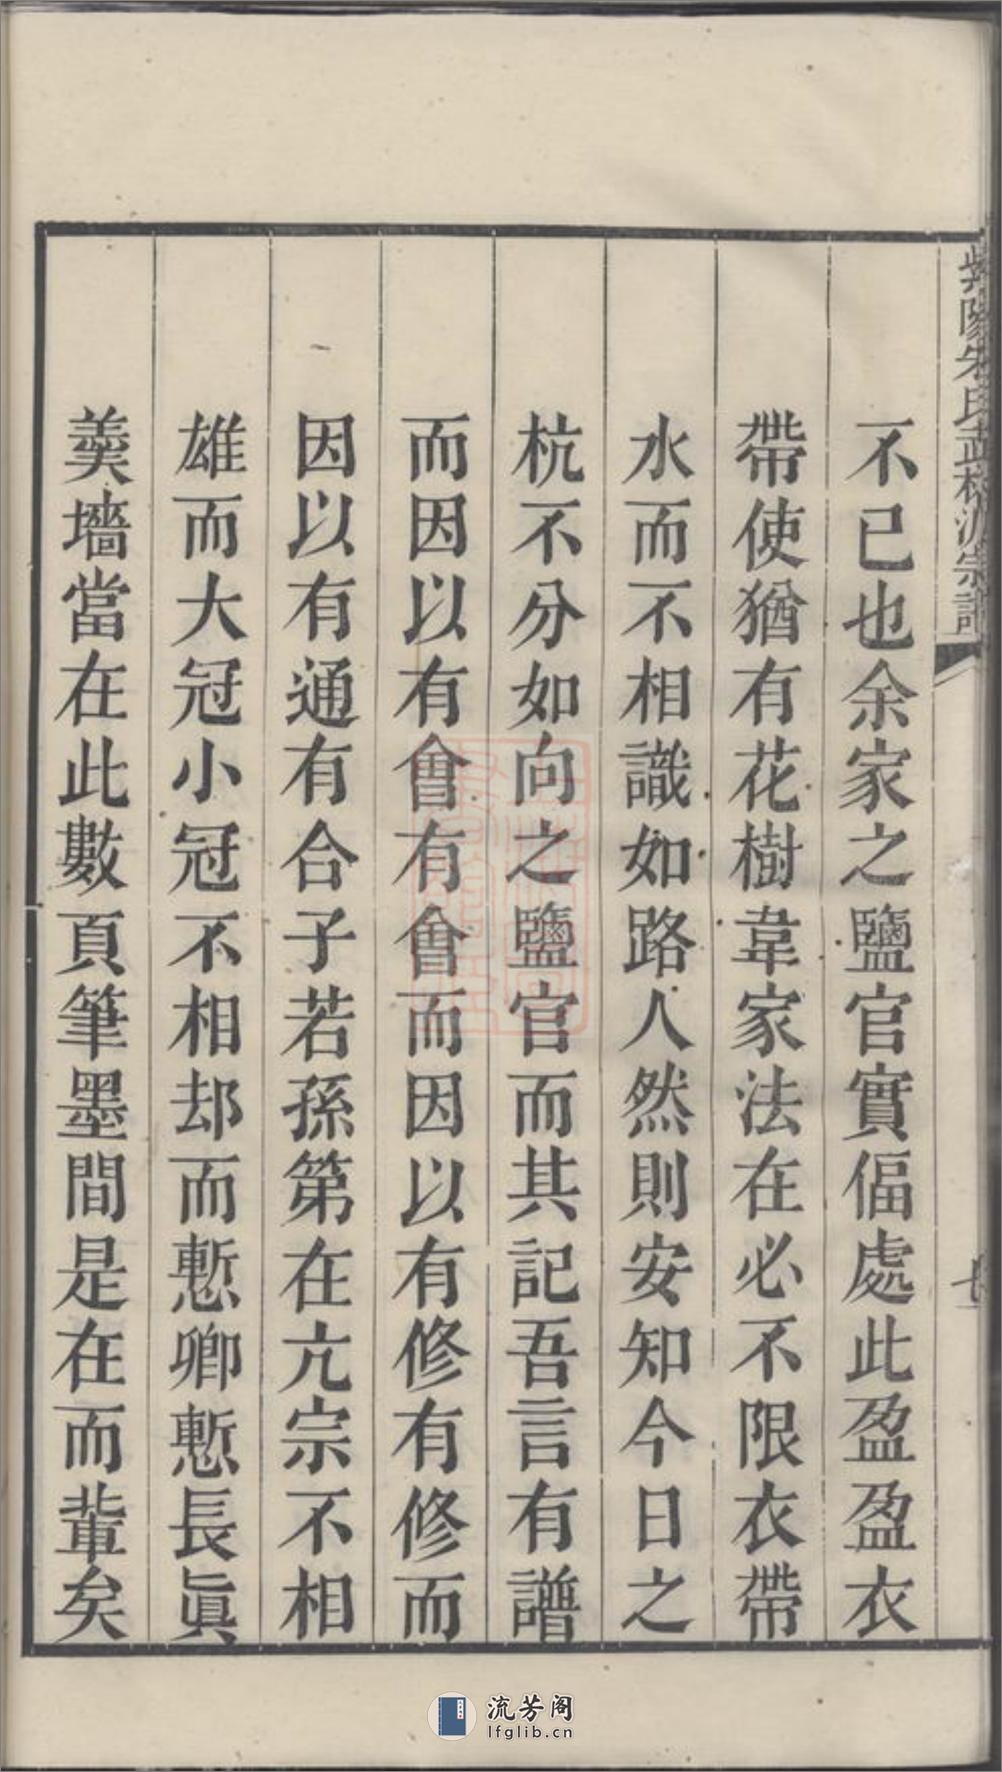 紫陽朱氏武林派宗譜
不已也余家之鹽官實偪處此盈盈衣
帶使猶有花樹韋家法在必不限衣帶
水而不相識如路人然則安知今日之
杭不分如向之鹽官而其記吾言有譜
而因以有會有會而因以有修有修而
因以有通有合子若孫第在亢宗不相
雄而大冠小冠不相却而慙卿慙長眞
羹墻當在此數頁筆墨間是在而輩矣
流芳阁
lfglib.cn